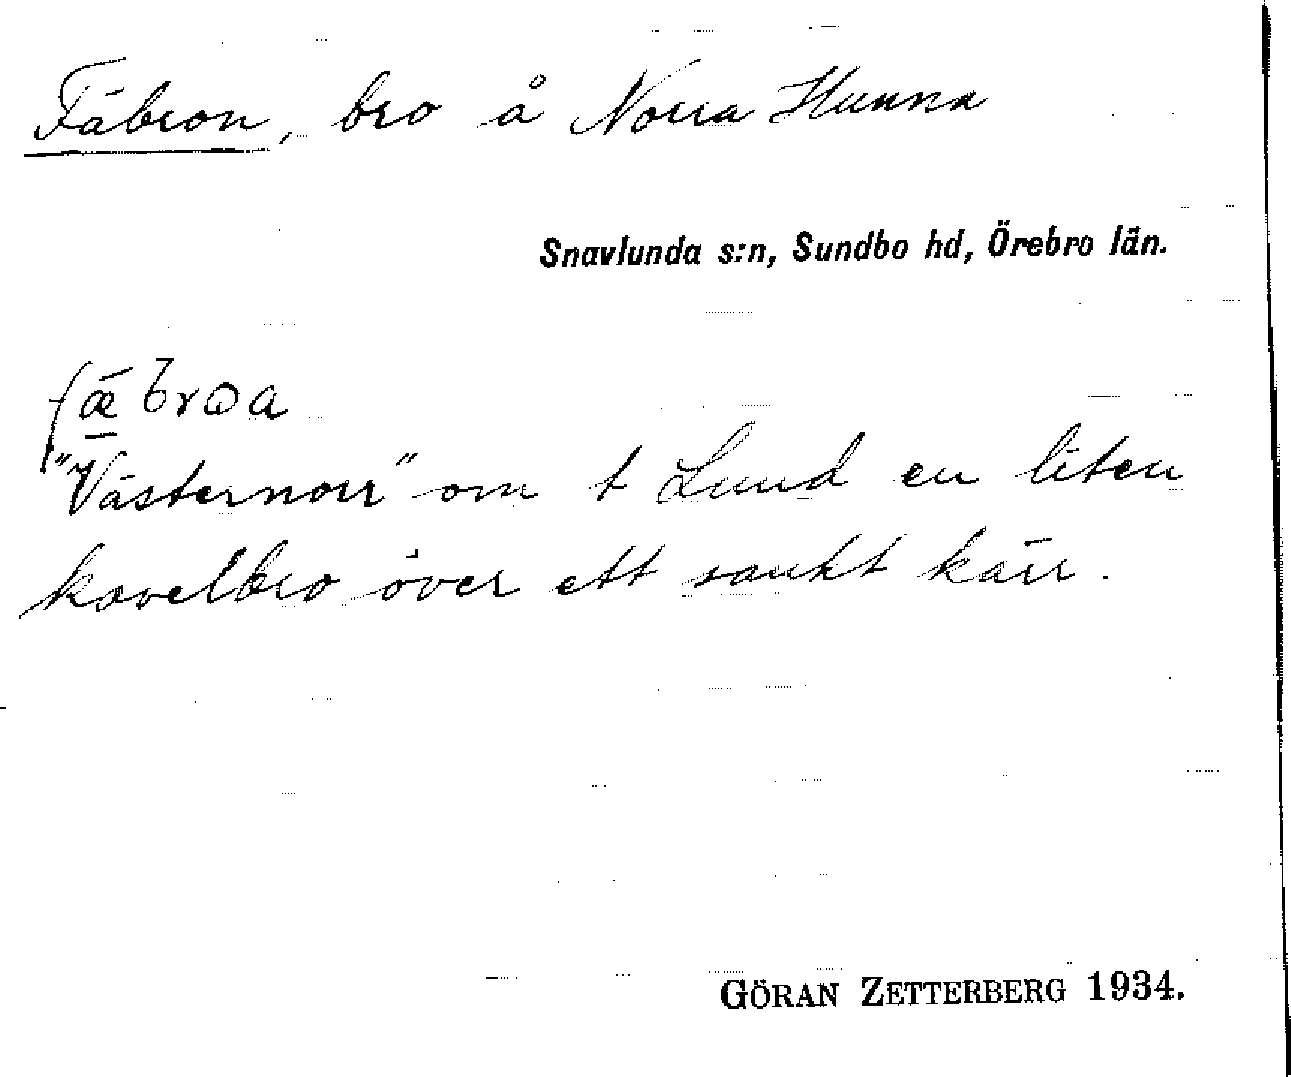 Fäbron, bro å Norra Hunna
Snavlunda s:n, Sundbo hd, Örebro län.
"Västernorr" om t Lund en liten
kavelbro över ett sankt kärr.
GÖRAN ZETTERBERG 1934.